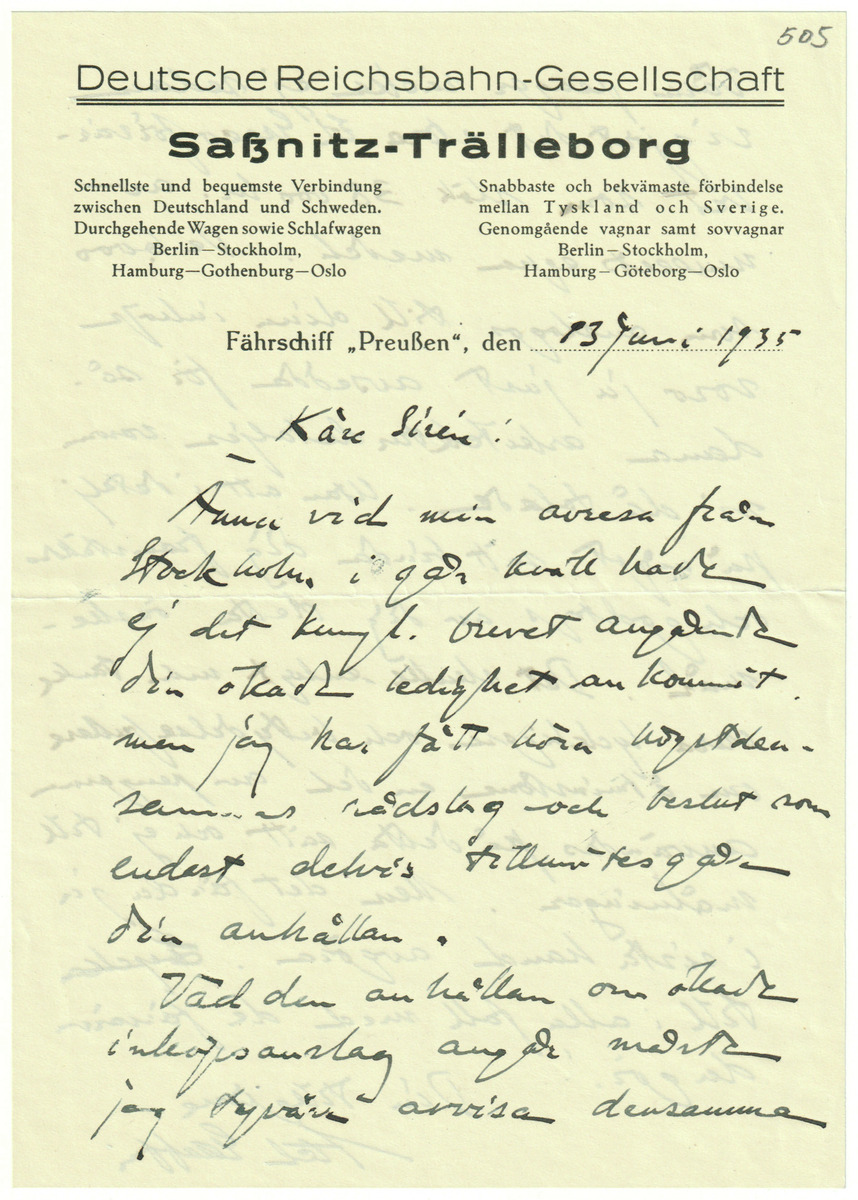 505
Deutsche Reichsbahn-Gesellschaft
Saßnitz-Trälleborg
Schnellste und bequemste Verbindung
zwischen Deutschland und Schweden.
Durchgehende Wagen sowie Schlafwagen
Berlin—Stockholm,
Hamburg—Gothenburg—Oslo
Snabbaste och bekvämaste förbindelse
mellan Tyskland och Sverige.
Genomgående vagnar samt sovvagnar
Berlin—Stockholm,
Hamburg—Göteborg—Oslo
Fährschiff „Preußen“, den 13 Juni 1935
Käre Sirén!
Ännu vid min avresa från
Stockholm i går kväll hade
ej det kungl. brevet angående
din ökade ledighet ankommit,
men jag har fått höra högstden-
sammas rådslag och beslut som
endast delvis tillmötesgår
din anhållan.
Vad den anhållan om ökade
inköpsanslag angår måste
jag tyvärr avvisa densamma